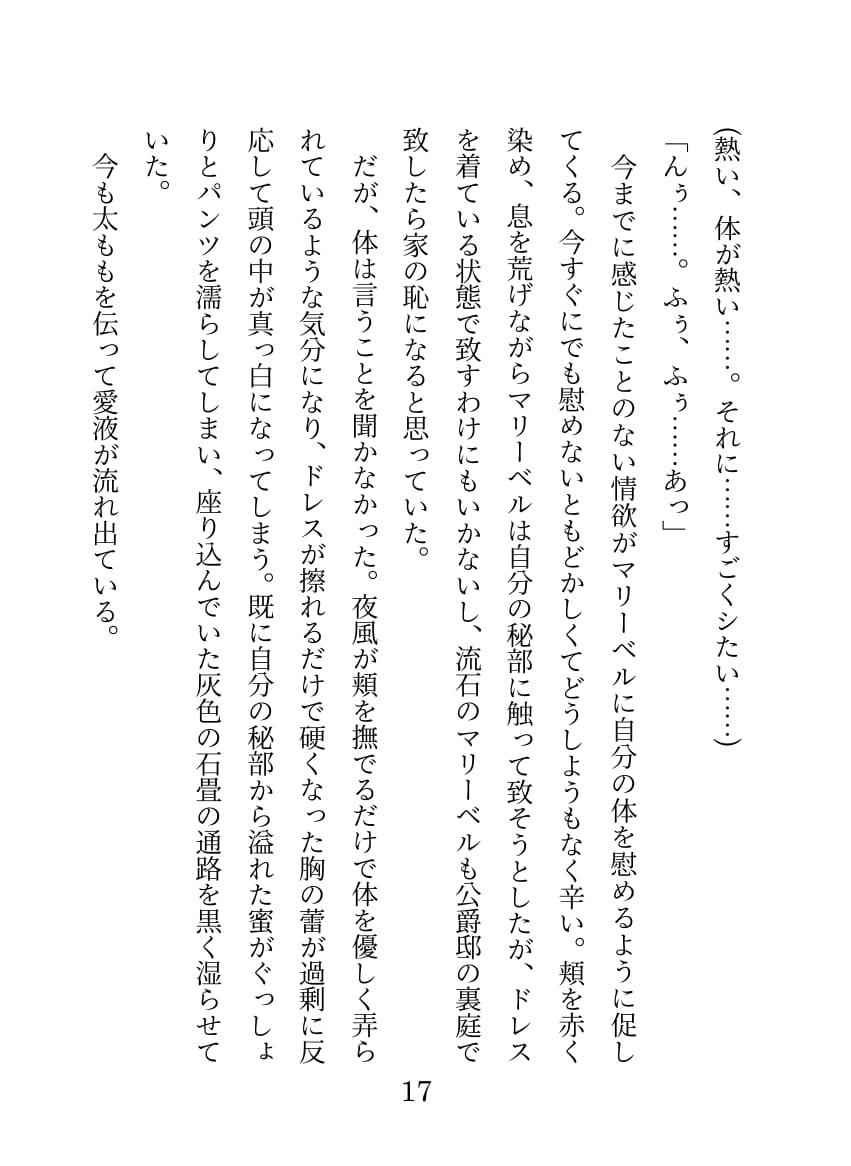 (熱い、体が熱い……。それに……すごくシたい……)
「んぅ……。ふぅ、ふぅ……あっ」
今までに感じたことのない情欲がマリーベルに自分の体を慰めるように促し
てくる。今すぐにでも慰めないともどかしくてどうしようもなく辛い。頬を赤く
染め、息を荒げながらマリーベルは自分の秘部に触って致そうとしたが、ドレス
を着ている状態で致すわけにもいかないし、流石のマリーベルも公爵邸の裏庭で
致したら家の恥になると思っていた。
だが、体は言うことを聞かなかった。夜風が頬を撫でるだけで体を優しく弄ら
れているような気分になり、ドレスが擦れるだけで硬くなった胸の蕾が過剰に反
応して頭の中が真っ白になってしまう。既に自分の秘部から溢れた蜜がぐっしょ
りとパンツを濡らしてしまい、座り込んでいた灰色の石畳の通路を黒く湿らせて
いた。
今も太ももを伝って愛液が流れ出ている。
17